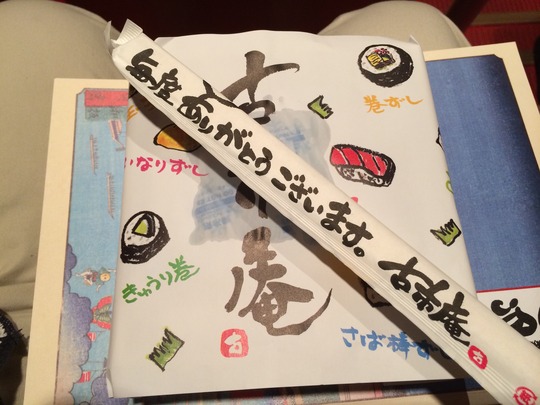 毎度ありがとうございます。
古市庵
古
巻ずし
いなりずし
きゅうり巻
庵
古
さば棒ずし